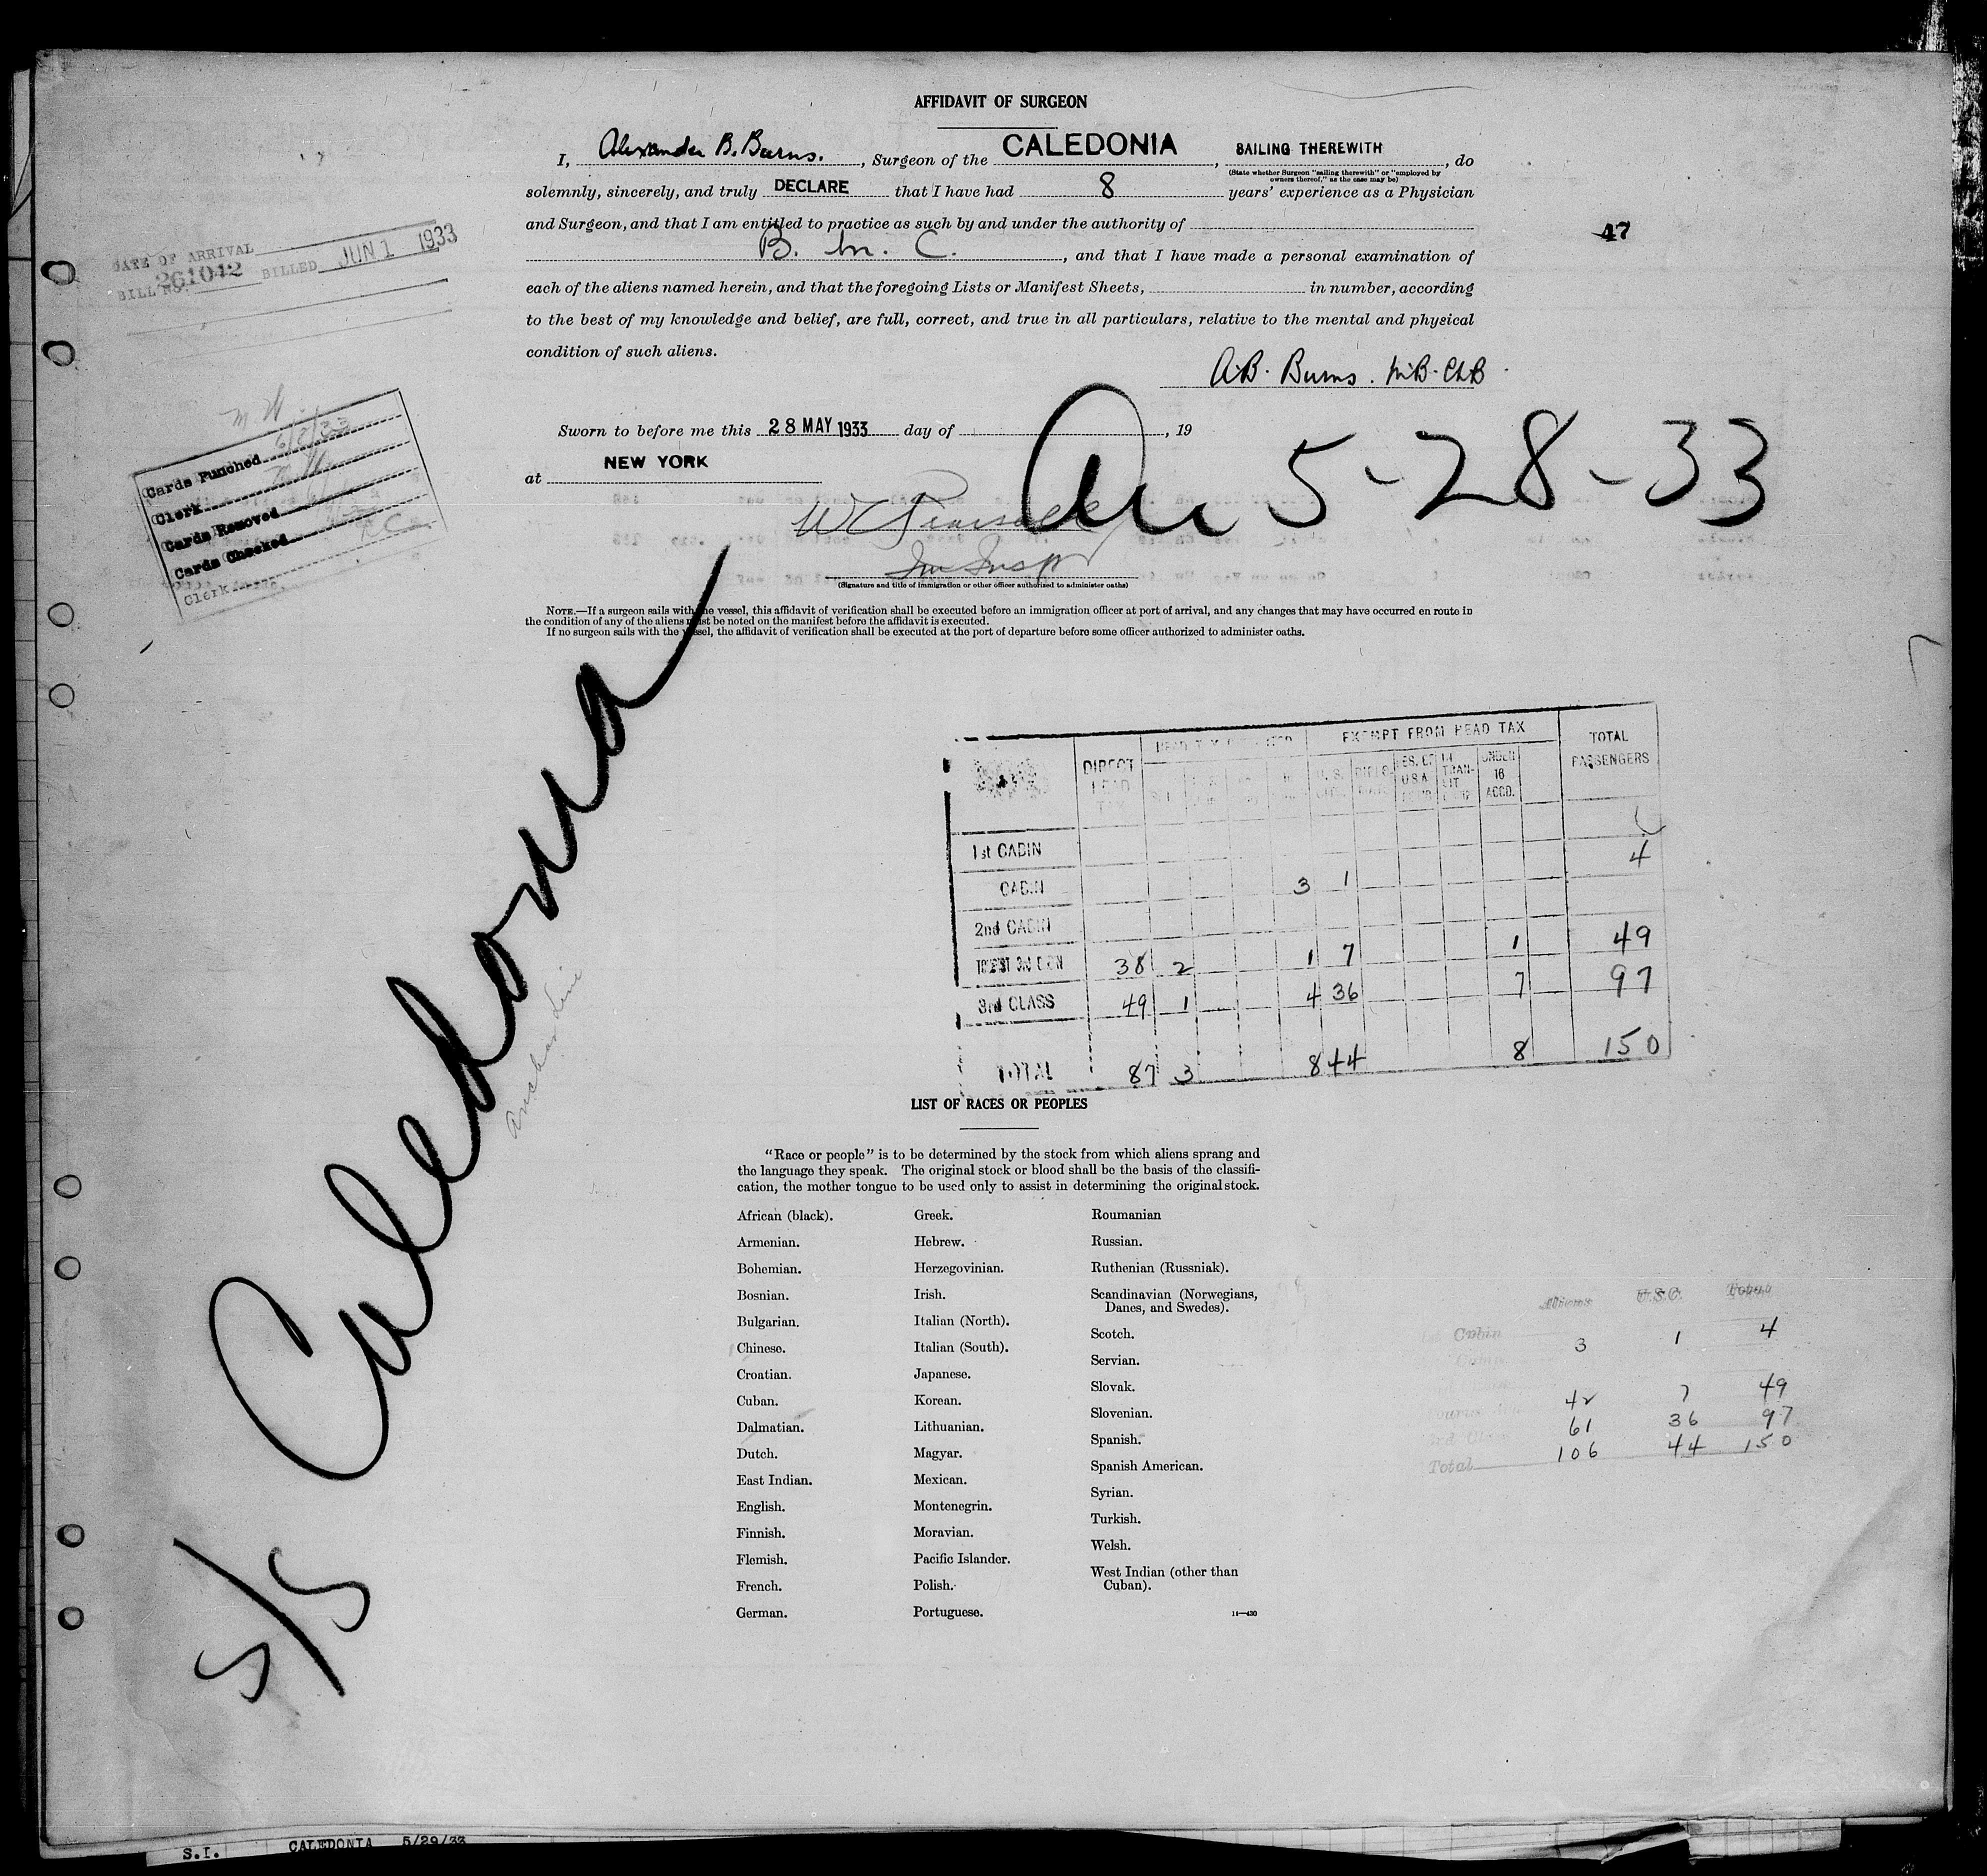 AFFIDAVIT OF SURGEON
I, Alexander B. Burns., Surgeon of the CALEDONIA, SAILING THEREWITH, do
(State whether Surgeon "sailing therewith" or "employed by
owners thereof," as the case may be)
solemnly, sincerely, and truly DECLARE that I have had 8 years' experience as a Physician
and Surgeon, and that I am entitled to practice as such by and under the authority of
B. M. C., and that I have made a personal examination of
each of the aliens named herein, and that the foregoing Lists or Manifest Sheets, in number, according
to the best of my knowledge and belief, are full, correct, and true in all particulars, relative to the mental and physical
condition of such aliens.
47
DATE OF ARRIVAL
BILL NO. 261042 BILLED JUN 1 1933
A.B. Burns. M.B. Ch.B
Sworn to before me this 28 MAY 1933 day of , 19
at NEW YORK
5-28-33
(Signature and title of immigration or other officer authorized to administer oaths)
Cards Punched 6/2/33
Clerk
Cards Removed
Cards Checked
Clerk
NOTE.—If a surgeon sails with the vessel, this affidavit of verification shall be executed before an immigration officer at port of arrival, and any changes that may have occurred en route in
the condition of any of the aliens must be noted on the manifest before the affidavit is executed.
If no surgeon sails with the vessel, the affidavit of verification shall be executed at the port of departure before some officer authorized to administer oaths.
S/S Caledonia
Anchor Line
DIRECT HEAD TAX EXEMPT FROM HEAD TAX TOTAL PASSENGERS
UNDER 16 ACCD.
1st CABIN
CABIN 3 1 4
2nd CABIN
38 2 1 7 1 49
3rd CLASS 49 1 4 36 7 97
TOTAL 87 3 8 44 8 150
LIST OF RACES OR PEOPLES
"Race or people" is to be determined by the stock from which aliens sprang and
the language they speak. The original stock or blood shall be the basis of the classifi-
cation, the mother tongue to be used only to assist in determining the original stock.
African (black).
Armenian.
Bohemian.
Bosnian.
Bulgarian.
Chinese.
Croatian.
Cuban.
Dalmatian.
Dutch.
East Indian.
English.
Finnish.
Flemish.
French.
German.
Greek.
Hebrew.
Herzegovinian.
Irish.
Italian (North).
Italian (South).
Japanese.
Korean.
Lithuanian.
Magyar.
Mexican.
Montenegrin.
Moravian.
Pacific Islander.
Polish.
Portuguese.
Roumanian
Russian.
Ruthenian (Russniak).
Scandinavian (Norwegians,
Danes, and Swedes).
Scotch.
Servian.
Slovak.
Slovenian.
Spanish.
Spanish American.
Syrian.
Turkish.
Welsh.
West Indian (other than
Cuban).
14—430
Aliens U.S.C. Total
Cabin 3 1 4
42 7 49
61 36 97
Total 106 44 150
S.I. CALEDONIA 5/29/33